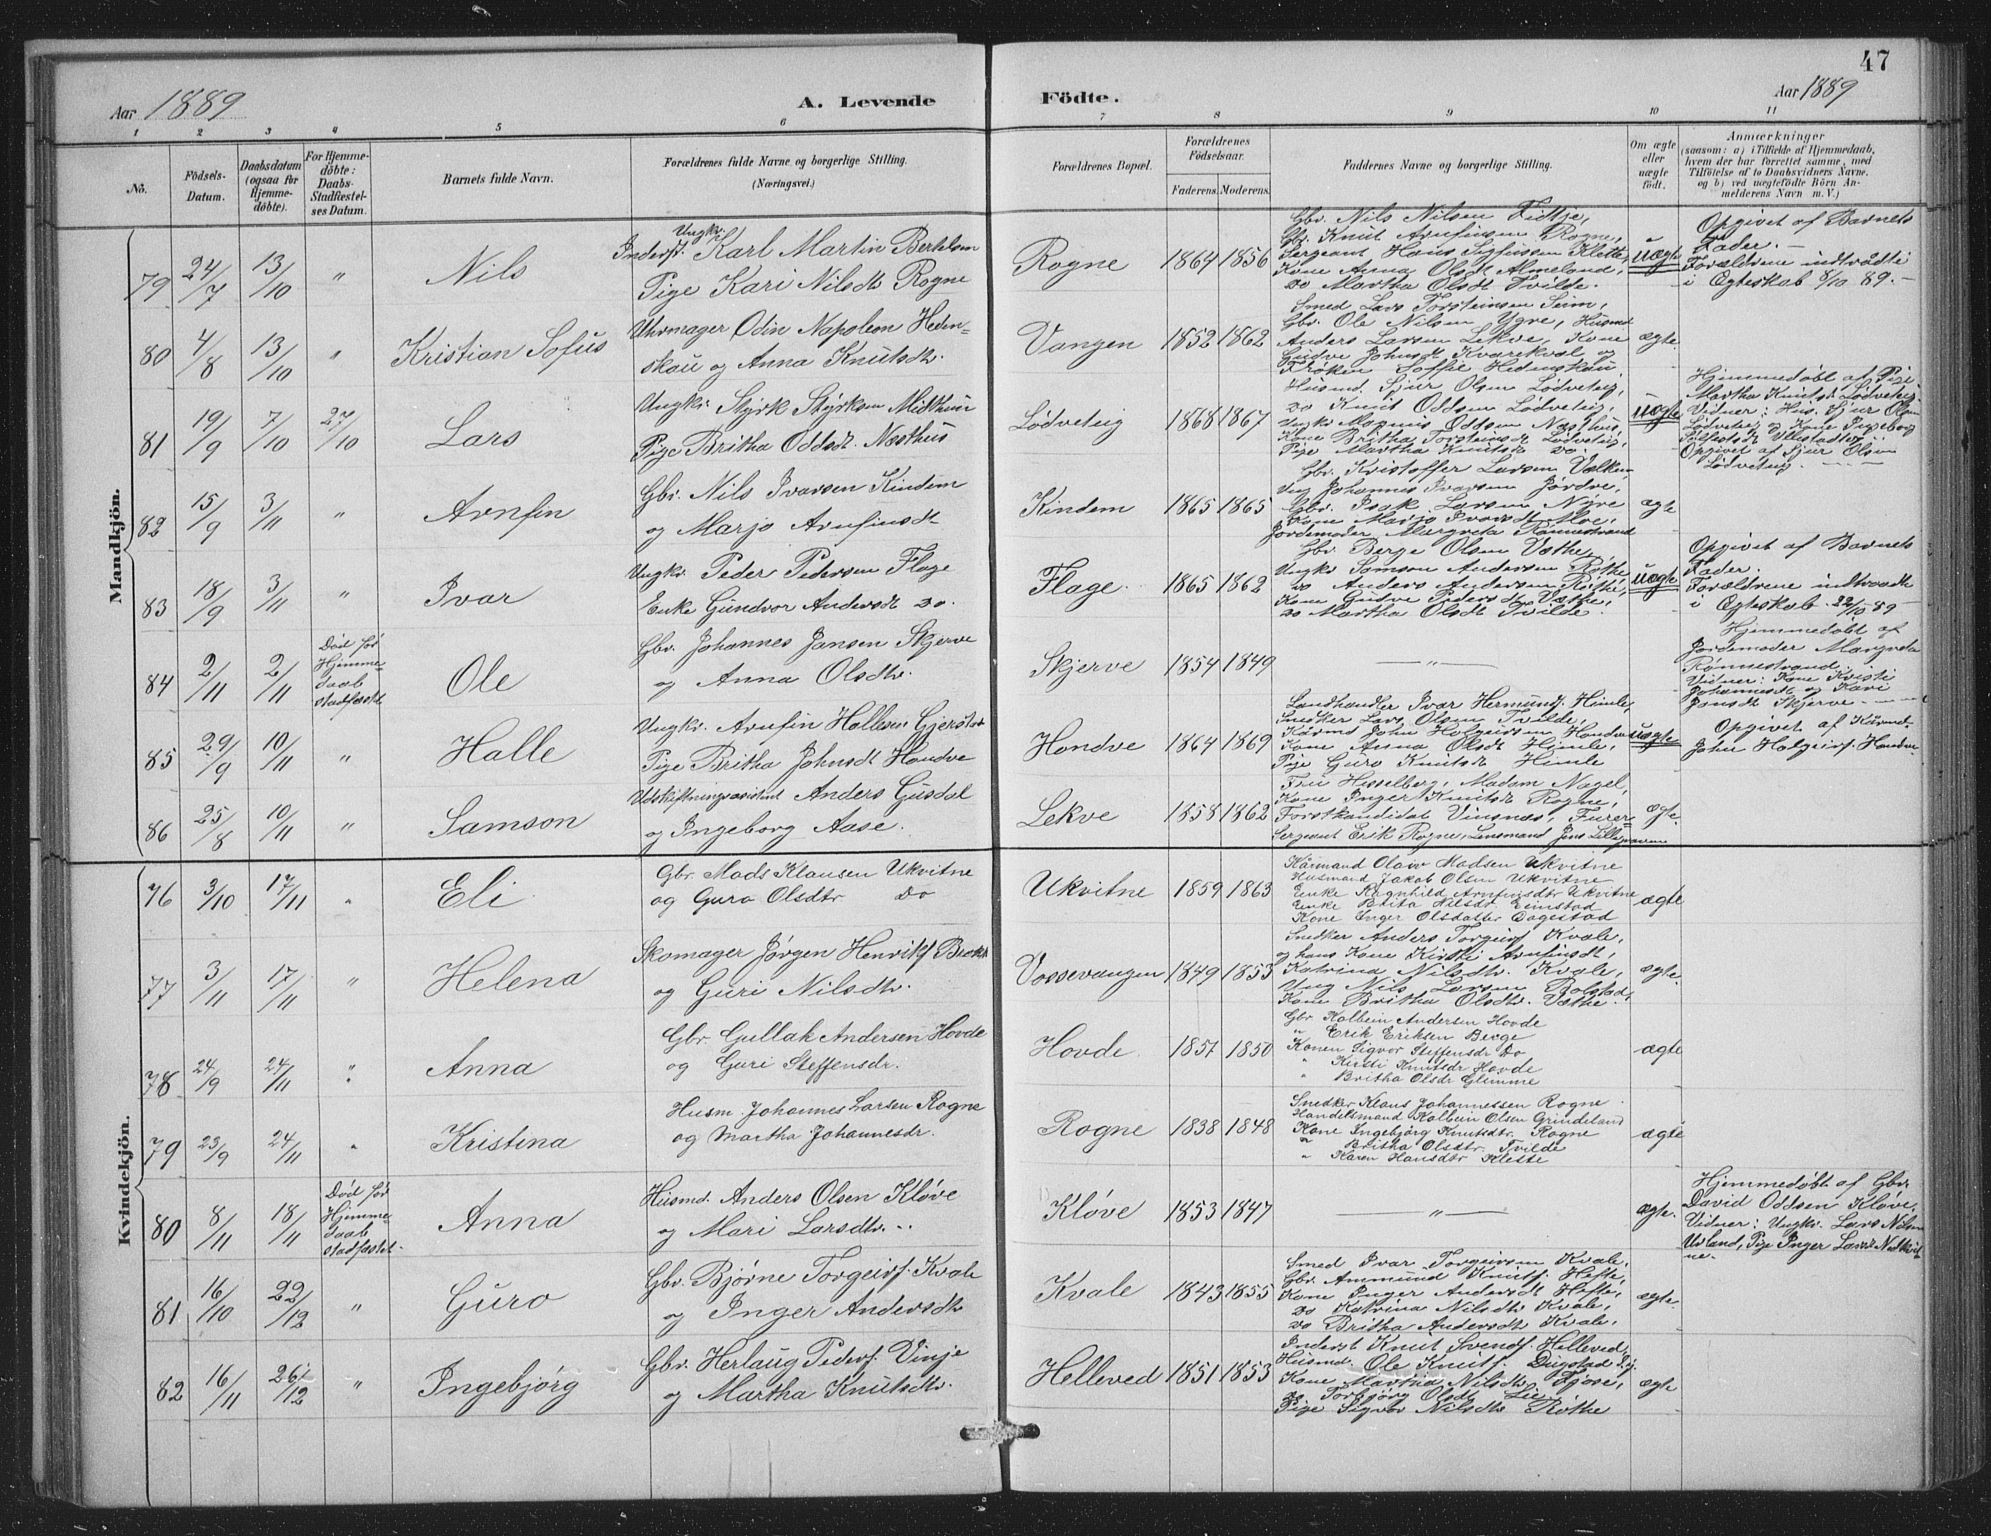 47
Aar 1889
A. Levende
Födte.
Aar 1889
1 2 3 4 5 6 7 8 9 10 11
No.
Födsels-
Datum.
Daabsdatum
(ogsaa for
Hjemme-
döbte).
For Hjemme-
döbte:
Daabs-
Stadfæstel-
ses Datum.
Barnets fulde Navn.
Forældrenes fulde Navne og borgerlige Stilling.
(Næringsvei.)
Forældrenes Bopæl.
Forældrenes
Födselsaar.
Faderens. Moderens.
Faddernes Navne og borgerlige Stilling.
Om ægte
eller
uægte
födt.
Anmærkninger
(saasom: a) i Tilfælde af Hjemmedaab,
hvem der har forrettet samme, med
Tilföielse af to Daabsvidners Navne,
og b) ved uægtefödte Börn An-
melderens Navn m. V.)
Mandkjön.
79 24/7 13/10 " Nils
Ungkr.
Inderst. Karl Martin Bertelsen
Pige Kari Nilsdtr Rogne
Rogne 1864 1856
Gbr. Nils Nilsen Fidtje,
Gbr. Knut Arnfinsen Rogne,
Sergeant Hans Sjursen Klette,
Kone Anna Olsdt Almeland,
Do Martha Olsdt Tvilde.
uægte
Opgivet af Barnets
Fader. —
Forældrene indtrådte
i Ægteskab 8/10 89. —
80 4/8 13/10 " Kristian Sofus
Uhrmager Odin Napoleon Heden-
skou og Anna Knutsdtr.
Vangen 1852 1862
Smed Lars Torsteinsen Seim,
Gbr. Ole Nilsen Ygre, Husmd
Anders Larsen Lekve, Kone
Gudve Johnsdt Kvarekval og
Frøken Soffie Hedenskou
ægte
81 19/9 7/10 27/10 Lars
Ungkr. Styrk Styrksen Midthun
Pige Britha Oddsdt. Næsthus
Lødveteig 1868 1867
Husmd. Sjur Olsen Lødveteig,
Do Knut Oddsen Lødveteig,
Ungk Magnus Oddsen Næsthus,
Kone Britha Torsteinsdt Lødveteig,
Pige Martha Knutsdt Do.
uægte
Hjemmedøbt af Pige
Martha Knutsdt Lødveteig.
Vidner: Hus. Sjur Olsen
Lødveteig og Kone Ingeborg
Opgivet af Sjur Olsen
Lødveteig. — —
82 15/9 3/11 " Arnfin
Gbr. Nils Ivarsen Kindem
og Marjo Arnfinsdt
Kindem 1865 1865
Gbr. Kristoffer Larsen Vælken
Ung Johannes Ivarsen Jørdre,
Gbr. Isak Larsen Nyre
Kone Marjo Ivarsdt Moe,
Jordemoder Margreta Rønnestrand
ægte
83 18/9 3/11 " Ivar
Ungkr. Peder Pedersen Flage
Enke Gundvor Andersdt Do.
Flage. 1865 1862
Gbr. Berge Olsen Væthe
Ungkr Samson Andersen Røthe,
Do Anders Andersen Røthe,
Kone Gudve Pedersdt Væthe,
Do Martha Olsdt Tvilde.
uægte
Opgivet af Barnets
Fader.
Forældrene indtraadte
i Ægteskab 22/10 89 —
84 2/11 2/11
Død før
Hjemme-
daab
stadfæstet
Ole
Gbr. Johannes Jansen Skjerve
og Anna Olsdtr.
Skjerve 1854 1849
— " —
Hjemmedøbt af
Jordemoder Margreta
Rønnestrand.
Vidner: Kone Kristi
Johannesdt og Kari
Jonsdt Skjerve — —
85 29/9 10/11 " Halle
Ungkr. Arnfin Hallesen Gjerstad
Pige Britha Johnsdt Hondve
Hondve 1864 1869
Landhandler Ivar Hermunds. Himle,
Snedker Lars Olsen Tvilde,
Kårmd John Holgersen Hondve
Kone Anna Olsdt Himle,
Pige Guro Knutsdt Himle
uægte
Opgivet af Kårmd.
John Holgeirs. Hondve
86 25/8 10/11 " Samson
Udskiftningsassistent Anders Gusdal
og Ingeborg Aase.
Lekve 1858 1862
Fru Hesselberg, Madam Nagel,
Kone Inger Knutsdt Rogne,
Forstkandidat Vinsnæs, Furer
Sergeant Erik Rogne, Lensmand Jens Lillegraven
ægte.
Kvindekjön.
76 3/10 17/11 " Eli
Gbr. Mads Klausen Ukvitne
og Guro Olsdtr Do
Ukvitne 1859 1863
Kårmand Olaiv Madsen Ukvitne
Husmand Jakob Olsen Ukvitne
Enke Ragnhild Arnfinsdtr Ukvitne
Enke Brita Nilsdtr Eimstad
Kone Inger Olsdatter Dagestad
ægte
77 3/11 17/11 " Helena
Skomager Jørgen Henriks. Brekke
og Guri Nilsdtr.
Vossevangen 1849 1853
Snedker Anders Torgeirs. Kvale,
og hans Kone Kirsti Arnfinsdt,
Katrina Nilsdtr. Kvale,
Ung Nils Larsen Bolstad,
Kone Britha Olsdtr. Væthe.
ægte.
78 24/9 24/11 " Anna
Gbr. Gullak Andersen Hovde
og Guri Steffensdr.
Hovde. 1857 1850
Gbr Kolbein Andersen Hovde
" Erik Eriksen Berge
Konen Sigvor Steffensdr Do
" Kirsti Knutsdr Hovde
" Britha Olsdr Glimme
ægte
79 23/9 24/11 " Kristina
Husm. Johannes Larsen Rogne
og Martha Johannesdr.
Rogne 1838 1848
Snedker Klaus Johannessen Rogne
Handelsmand Kolbein Olsen Grindeland
Kone Ingebjørg Knutsdtr. Rogne
" Britha Olsdtr. Tvilde
" Karen Hansdtr Klette
ægte
80 8/11 18/11
Død før
Hjemme-
daab
stadfæstet.
Anna
Husmd. Anders Olsen Kløve
og Mari Larsdtr. "
Kløve 1853 1847
— " —
ægte.
Hjemmedøbt af Gbr.
David Oddsen Kløve,
Vidner: Ungkr. Lars Nilsen
Urland, Pige Inger Larsdt Nedkvit-
ne.
81 16/10 22/12 " Guro
Gbr. Bjørne Torgeirs. Kvale
og Inger Andersdtr
Kvale 1843 1855
Smed Ivar Torgeirsen Kvale,
Gbr. Ammund Knuts. Hefte,
Kone Inger Andersdt Hefte,
Do Katrina Nilsdtr Kvale,
Do Britha Andersdtr Kvale.
ægte.
82 16/11 26/12 " Ingebjørg
Gbr. Herlaug Peders. Vinje
og Martha Knutsdtr.
Helleved 1851 1853
Inderst Knut Svends. Helleved,
Husmd. Ole Knuts. Dugstad
Kone Martha Nilsdtr Fjose,
Do Torbjørg Olsdt Lie
Pige Sigvor Nilsdtr Røthe
ægte